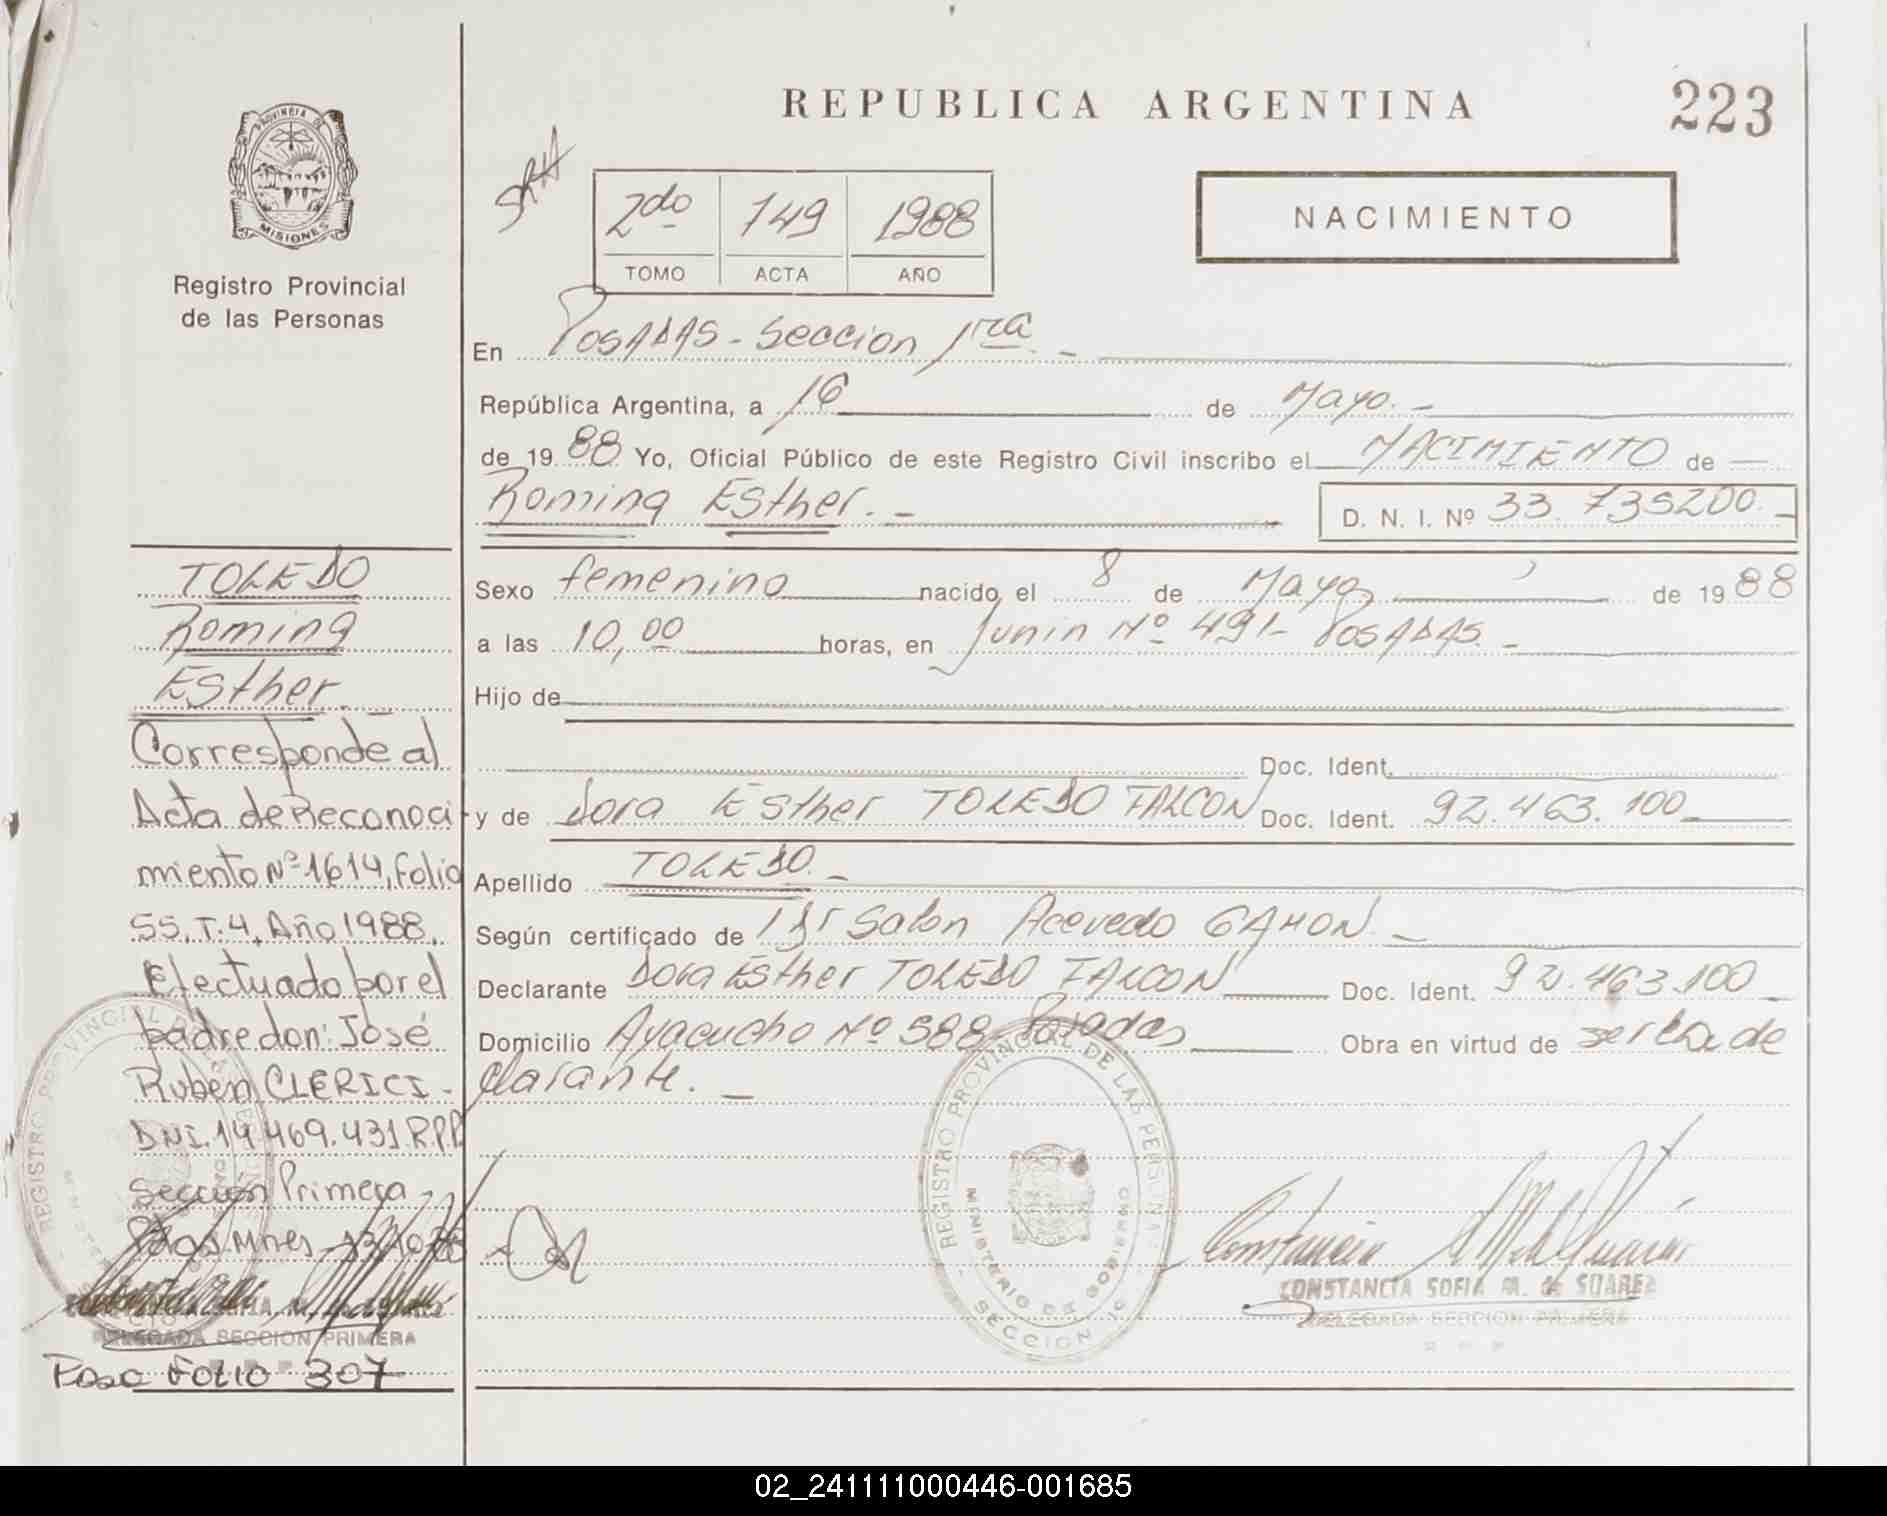 REPUBLICA ARGENTINA
223
PROVINCIA DE
MISIONES
Registro Provincial
de las Personas
2do 749 1988
TOMO ACTA AÑO
NACIMIENTO
En Posadas - Seccion 1ra. -
República Argentina, a 16 de Mayo. -
de 19 88 Yo, Oficial Público de este Registro Civil inscribo el NACIMIENTO de
Romina Esther. - D. N. I. Nº 33.735200. -
Sexo femenino nacido el 8 de Mayo de 19 88
a las 10,00 horas, en Junin Nº 491- Posadas. -
Hijo de
Doc. Ident.
y de Dora Esther TOLEDO FALCON Doc. Ident. 92.463.100
Apellido TOLEDO. -
Según certificado de Salon Acevedo GAHON. -
Declarante Dora Esther TOLEDO FALCON Doc. Ident. 92.463.100
Domicilio Ayacucho Nº 588 Posadas Obra en virtud de ser la de
clarante. -
TOLEDO
Romina
Esther. -
Corresponde al
Acta de Reconoci-
miento Nº 1614, Folio
55, T. 4, Año 1988.
Efectuado por el
padre don: José
Ruben CLERICI -
DNI. 14.469.431 R.P.P
Sección Primera
DELEGADA SECCION PRIMERA
Pasa FOLIO 307
REGISTRO PROVINCIAL DE LAS PERSONAS
MINISTERIO DE GOBIERNO
SECCION 1º
CONSTANCIA SOFIA M. de SUAREZ
DELEGADA SECCION PRIMERA
02_241111000446-001685